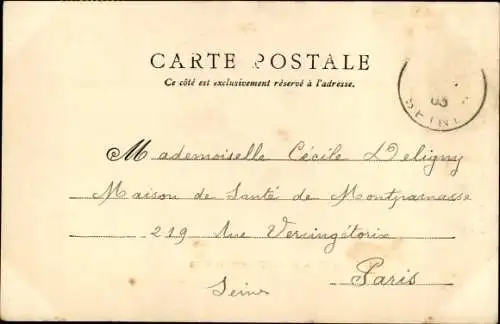 CARTE POSTALE
Ce côté est exclusivement réservé à l'adresse.
03
SEINE
Mademoiselle Cécile Deligny
Maison de Santé de Montparnasse
219 Rue Vercingétorix
Paris
Seine